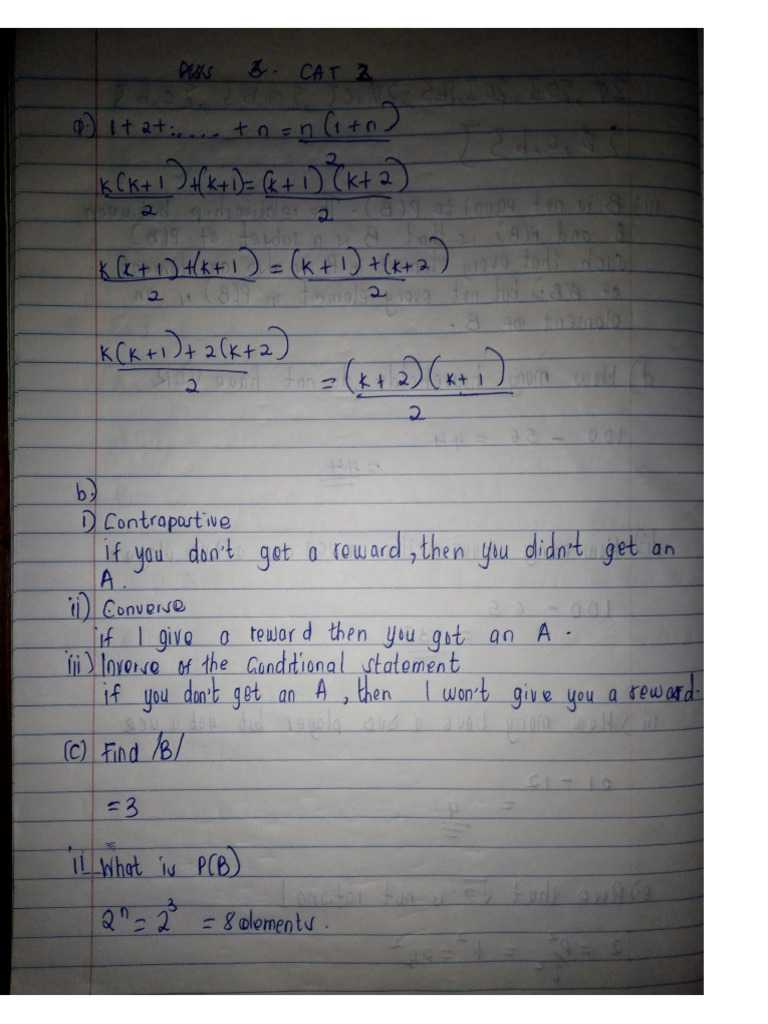 CAT 2
a) 1+2+..... + n = n(1+n)/2
k(k+1)/2 + (k+1) = (k+1)(k+2)/2
k(k+1)+(k+1)/2 = (k+1)+(k+2)/2
k(k+1)+2(k+2)/2 = (k+2)(k+1)/2
b)
i) Contrapostive
if you don't get a reward, then you didn't get an
A.
ii) Converse
if I give a reward then you got an A.
iii) Inverse of the Conditional statement
if you don't get an A, then I won't give you a reward.
(c) Find /B/
= 3
ii What is P(B)
2ⁿ = 2³ = 8 elements.